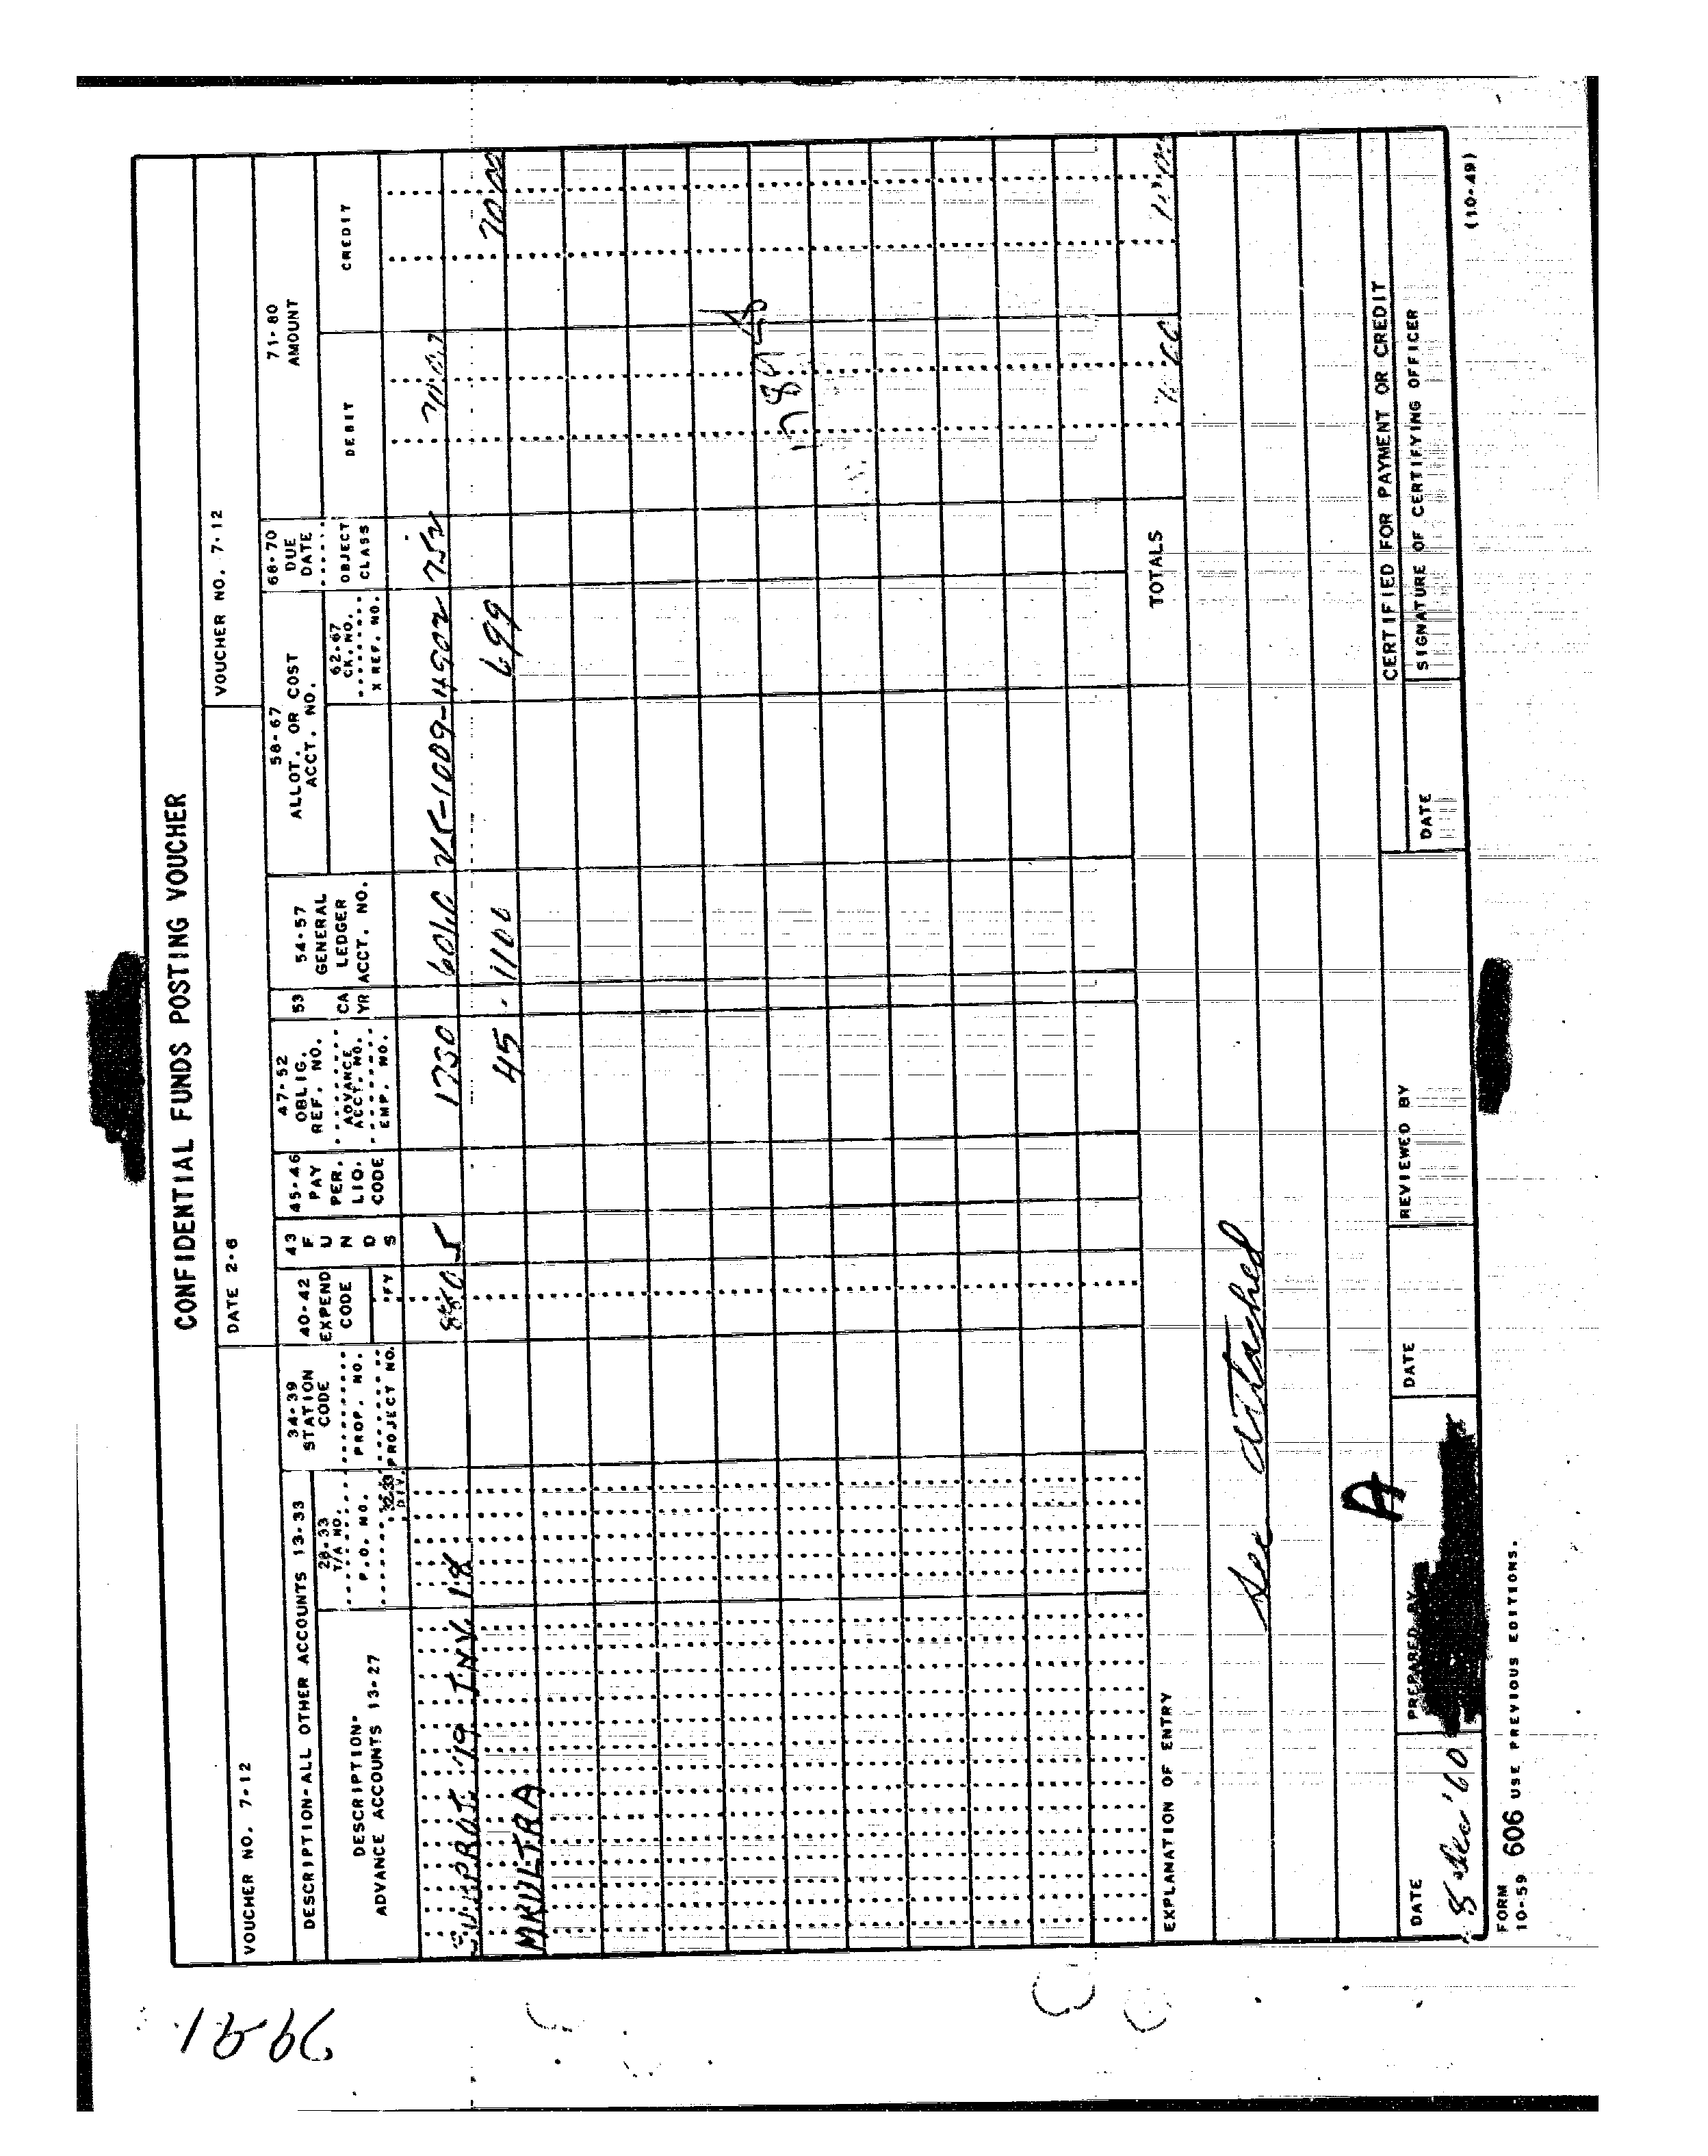 CONFIDENTIAL FUNDS POSTING VOUCHER
VOUCHER NO. 7-12
DATE 2-6
VOUCHER NO. 7-12
DESCRIPTION-ALL OTHER ACCOUNTS 13-33
DESCRIPTION-
ADVANCE ACCOUNTS 13-27
28-33
T/A NO.
P.O. NO.
32-33
DIV.
34-39
STATION
CODE
PROP. NO.
PROJECT NO.
40-42
EXPEND
CODE
FY
43
F
U
N
D
S
45-46
PAY
PER.
LIQ.
CODE
47-52
OBLIG.
REF. NO.
ADVANCE
ACCT. NO.
EMP. NO.
53
CA
YR
54-57
GENERAL
LEDGER
ACCT. NO.
58-67
ALLOT. OR COST
ACCT. NO.
62-67
CK. NO.
X REF. NO.
68-70
DUE
DATE
OBJECT
CLASS
71-80
AMOUNT
DEBIT
CREDIT
880 5 1730 6010 752
MKULTRA 45 1100 699 70.00
TOTALS
EXPLANATION OF ENTRY
See attached
A
CERTIFIED FOR PAYMENT OR CREDIT
DATE
8 Dec '60
PREPARED BY
DATE
REVIEWED BY
DATE
SIGNATURE OF CERTIFYING OFFICER
FORM
10-59 606 USE PREVIOUS EDITIONS.
(10-49)